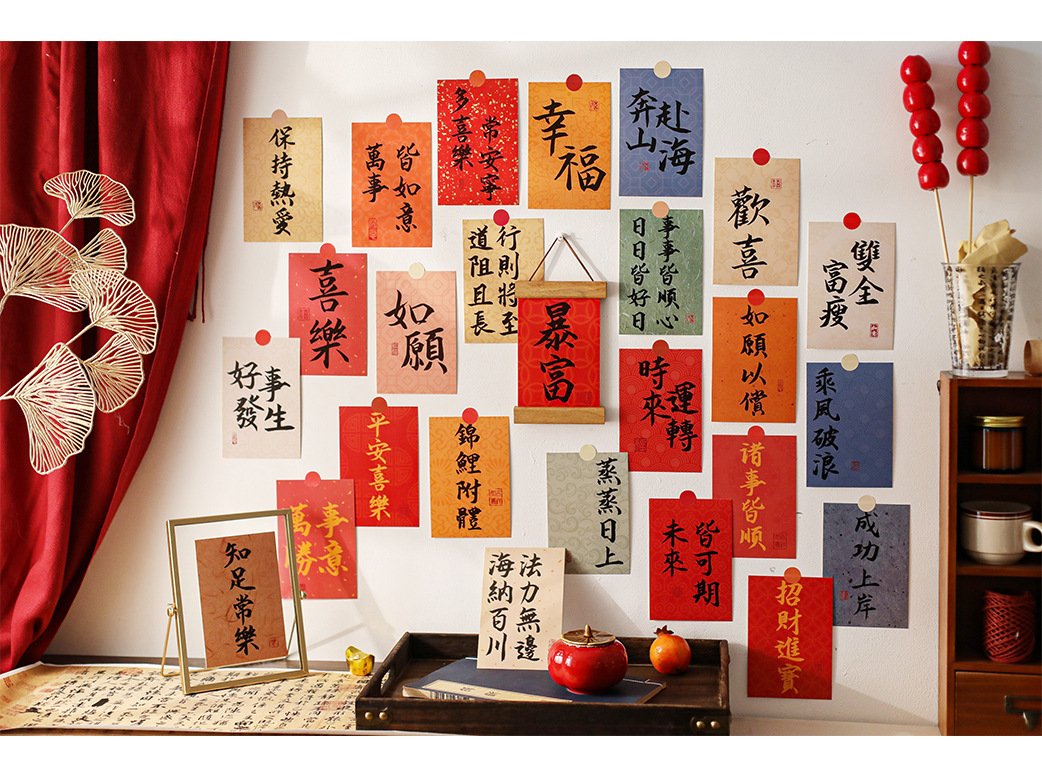 保持熱愛
萬事
皆如意
多喜樂
常安寧
幸福
奔山
赴海
歡喜
富瘦
雙全
喜樂
如願
道阻且長
行則將至
暴富
日日皆好日
事事皆順心
如願以償
乘風破浪
好事
發生
平安喜樂
錦鯉附體
時來
運轉
蒸蒸日上
諸事皆順
成功上岸
萬事
勝意
未來
皆可期
招財進寶
知足常樂
海納百川
法力無邊